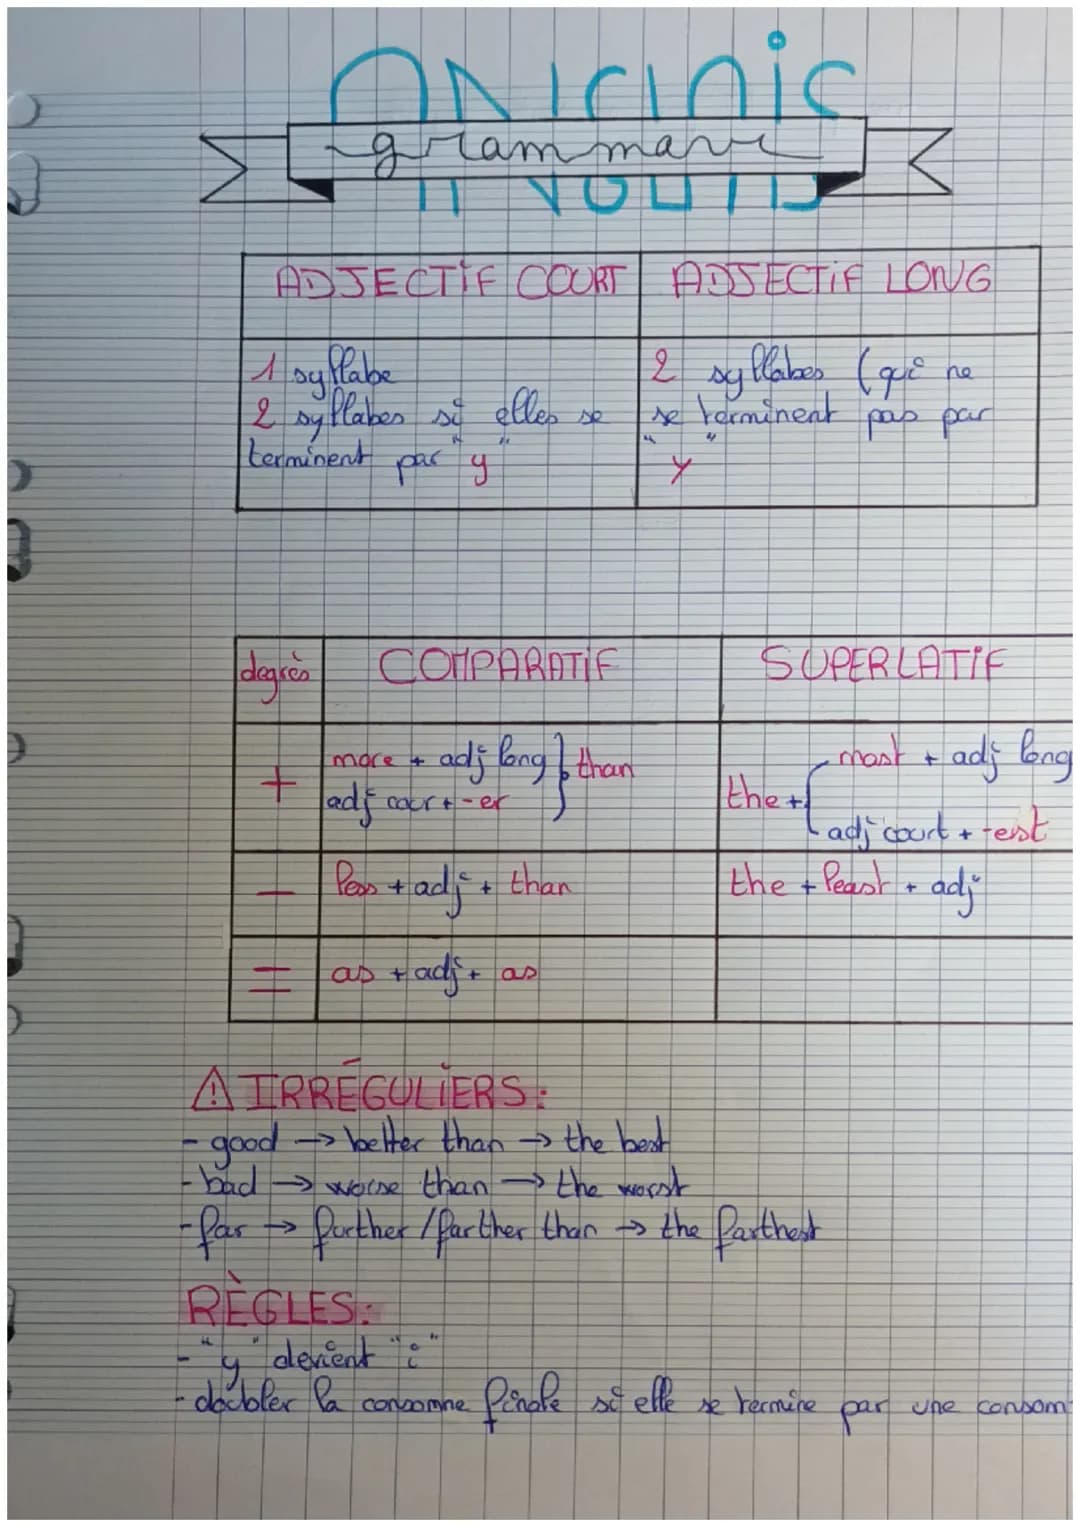 grammar
ADJECTIF COURT
ADJECTIF LONG
1 syllabe
2 syllabes si elles se
terminent par "y"
2 syllabes (qui ne
se terminent pas par
"y"
degrès
COMPARATIF
SUPERLATIF
+
more + adj long } than
adj cour + -er
the + { most + adj long
adj court + -est
—
less + adj + than
the + least + adj
=
as + adj + as
⚠ IRRÉGULIERS :
- good → better than → the best
- bad → worse than → the worst
- far → further / farther than → the farthest
RÈGLES :
- "y" devient "i"
- doubler la consomne finale si elle se termine par une consom